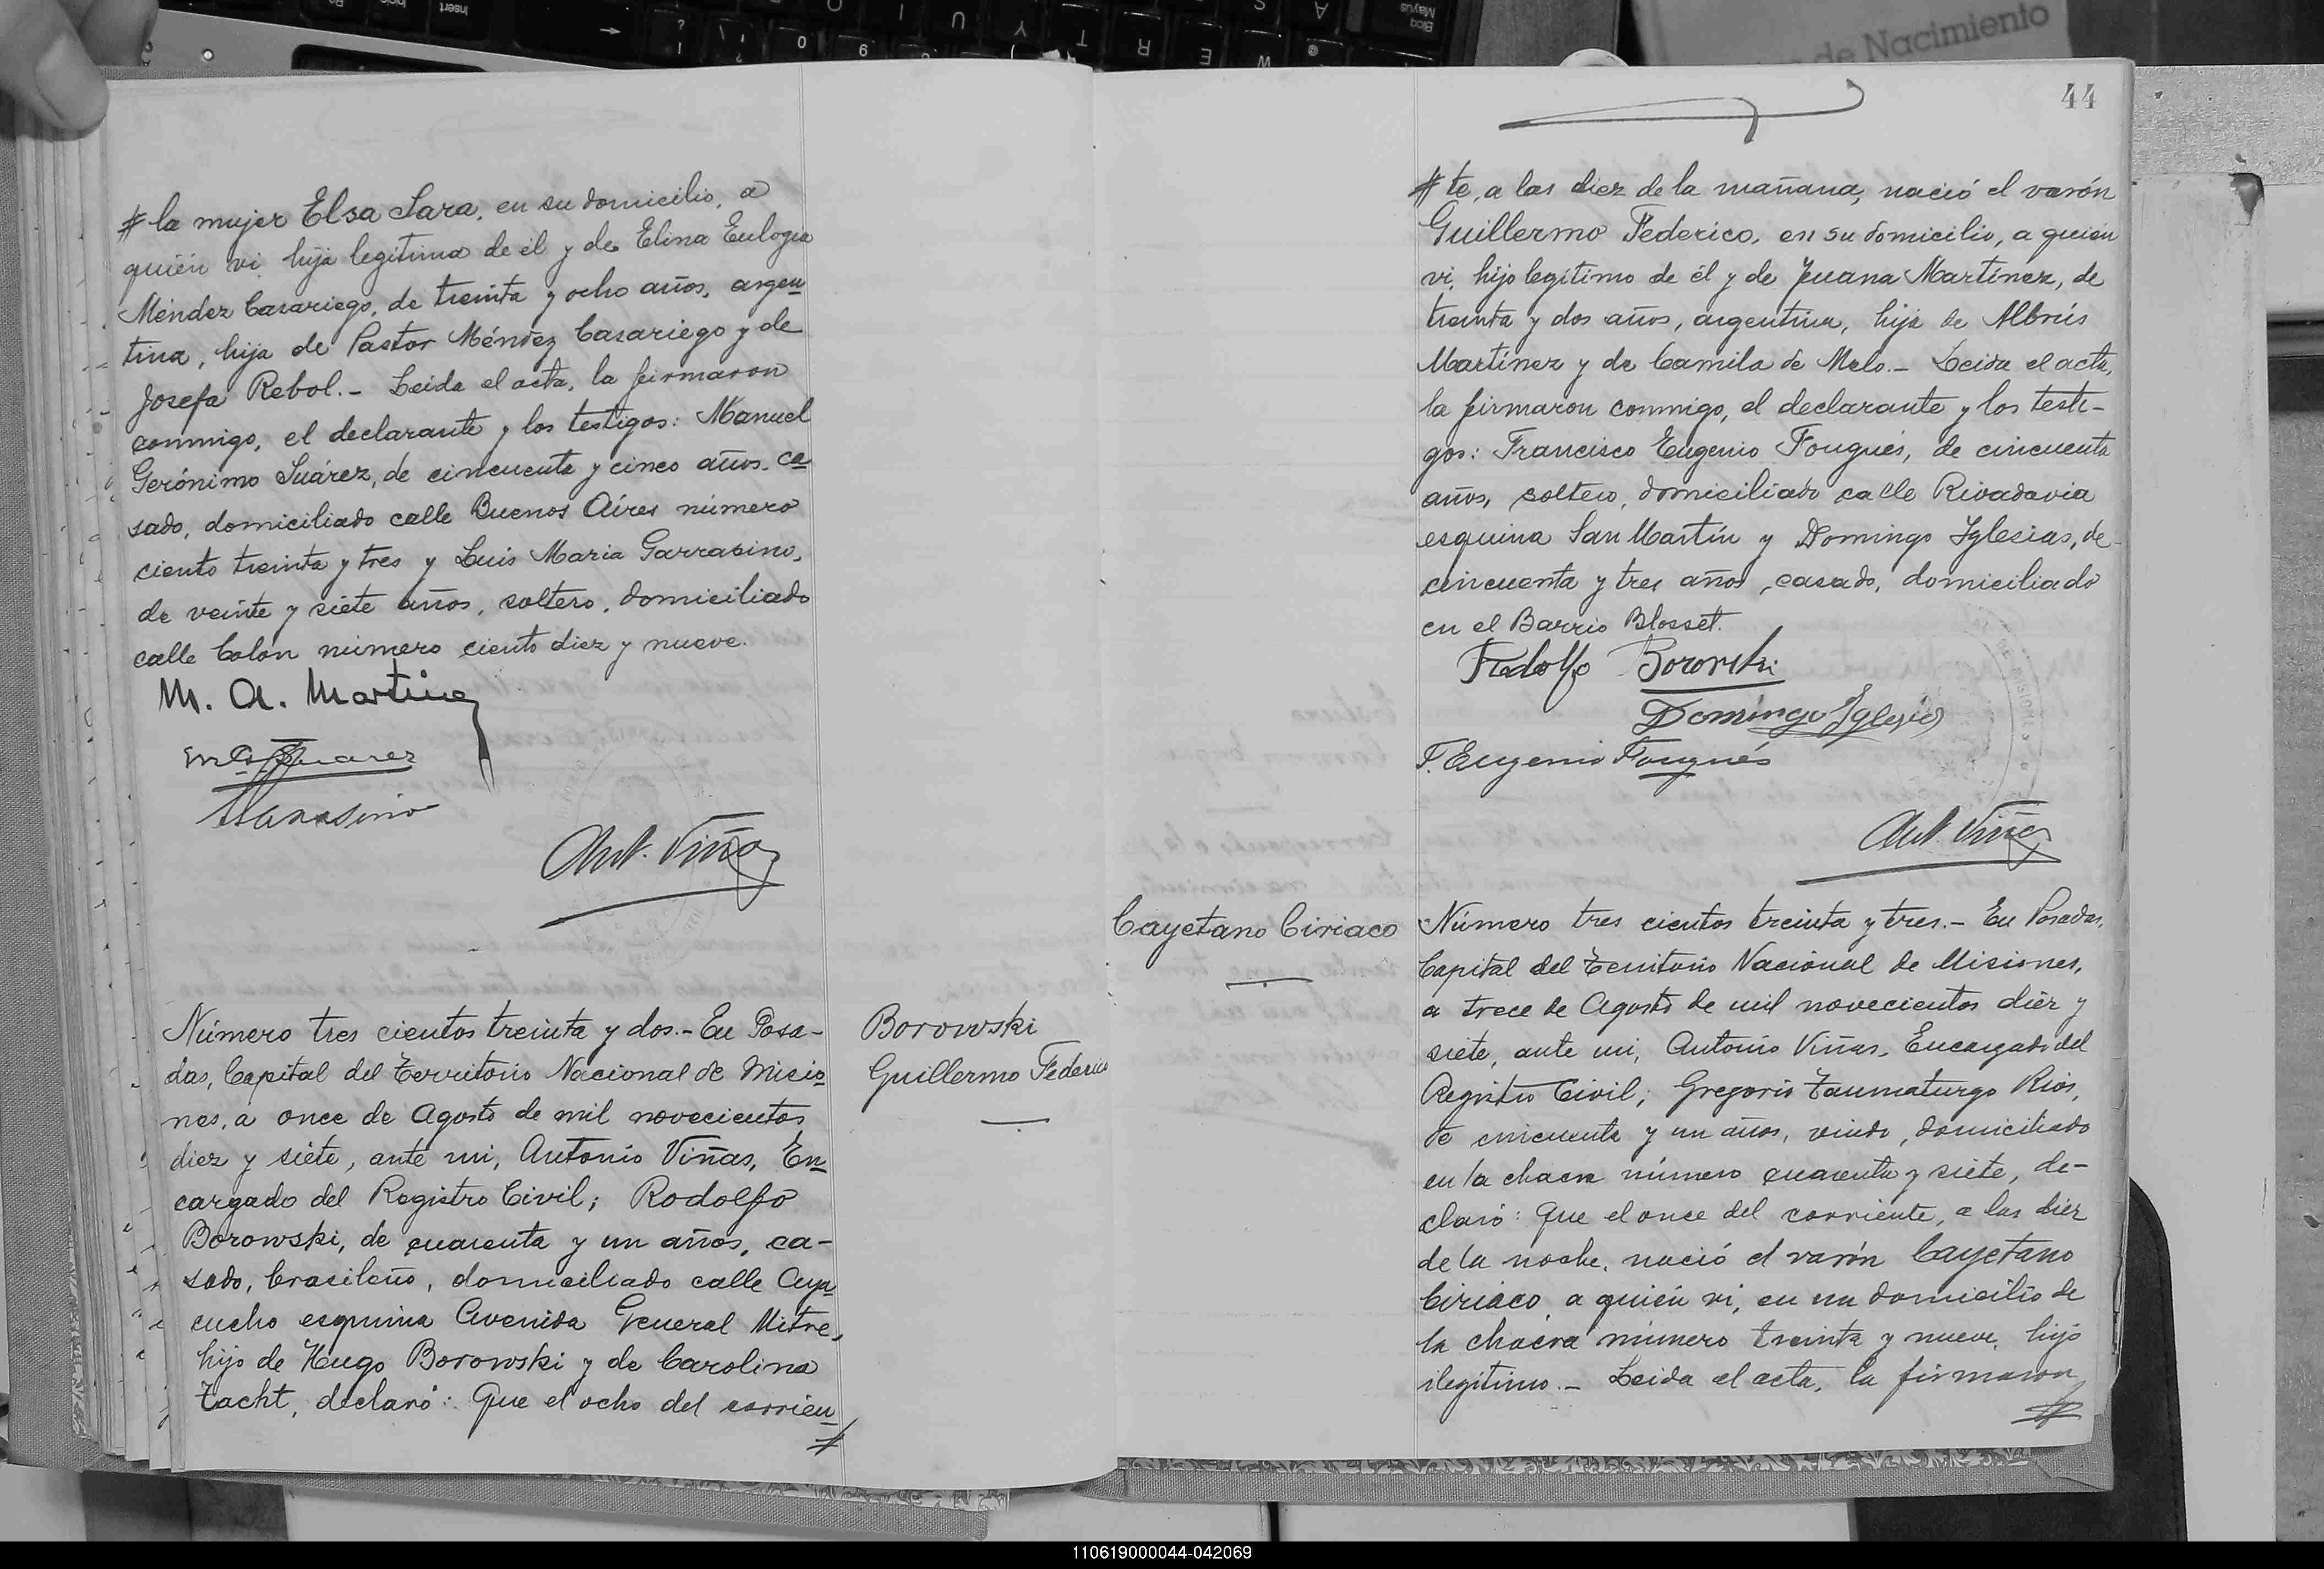 # la mujer Elsa Sara, en su domicilio, a
quién vi, hija legítima de él y de Elina Eulogia
Méndez Casariego, de treinta y ocho años, argen
tina, hija de Pastor Méndez Casariego y de
Josefa Rebol.- Leida el acta, la firmaron
conmigo, el declarante y los testigos: Manuel
Gerónimo Suárez, de cincuenta y cinco años, ca
sado, domiciliado calle Buenos Aires número
ciento treinta y tres y Luis Maria Garrasino,
de veinte y siete años, soltero, domiciliado
calle Colon número ciento diez y nueve.
M. A. Martinez
Suarez
Garrasino
Ant. Viñas
Número tres cientos treinta y dos.- En Posa-
das, Capital del Territorio Nacional de Misio
nes, a once de Agosto de mil novecientos
diez y siete, ante mi, Antonio Viñas, En
cargado del Registro Civil; Rodolfo
Borowski, de cuarenta y un años, ca-
sado, brasileño, domiciliado calle Aya
cucho esquina Avenida General Mitre,
hijo de Hugo Borowski y de Carolina
Zacht, declaró: Que el ocho del corrien
#
Borowski
Guillermo Federico
44
# te, a las diez de la mañana, nació el varón
Guillermo Federico, en su domicilio, a quién
vi, hijo legítimo de él y de Juana Martínez, de
treinta y dos años, argentina, hija de Albrís
Martínez y de Camila de Melo.- Leida el acta,
la firmaron conmigo, el declarante y los testi-
gos: Francisco Eugenio Fougués, de cincuenta
años, soltero, domiciliado calle Rivadavia
esquina San Martín y Domingo Iglesias, de
cincuenta y tres años, casado, domiciliado
en el Barrio Blosset.
Rodolfo Borowski
Domingo Iglesias
F. Eugenio Fougués
Ant. Viñas
Cayetano Ciriaco
Número tres cientos treinta y tres.- En Posadas,
Capital del Territorio Nacional de Misiones,
a trece de Agosto de mil novecientos diez y
siete, ante mi, Antonio Viñas, Encargado del
Registro Civil; Gregorio Taumaturgo Rios,
de cincuenta y un años, viudo, domiciliado
en la chacra número cuarenta y siete, de-
claró: Que el once del corriente, a las diez
de la noche, nació el varón Cayetano
Ciriaco, a quién vi, en un domicilio de
la chacra número treinta y nueve, hijo
ilegítimo.- Leida el acta, la firmaron
#
de Nacimiento
110619000044-042069